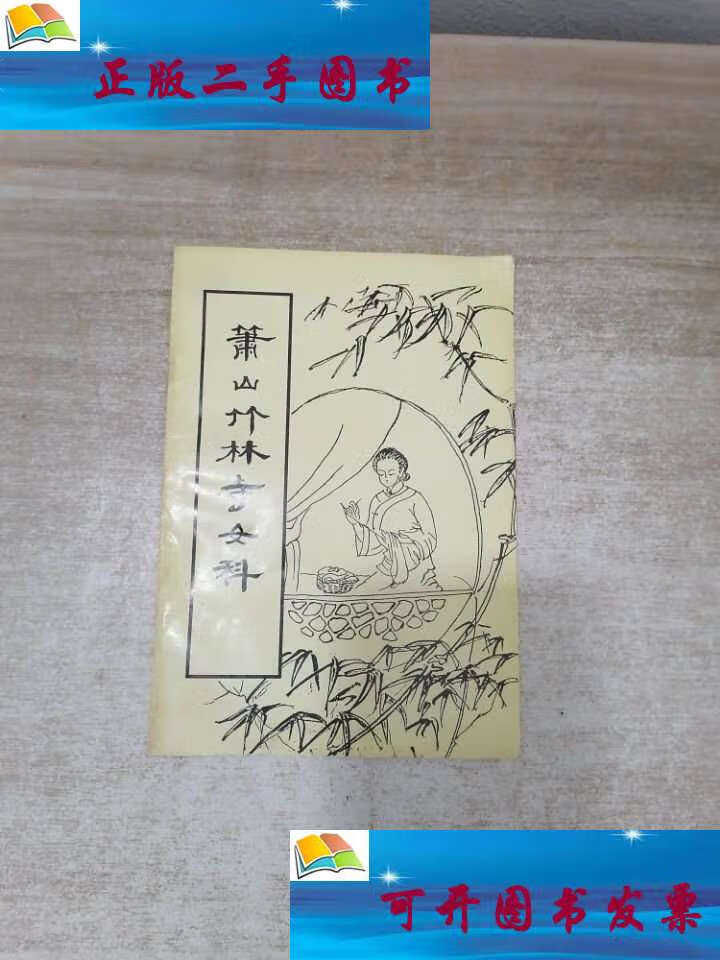 正版二手图书
萧山竹林寺女科
可开图书发票